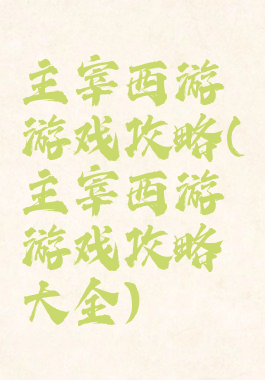 主宰西游
游戏攻略(
主宰西游
游戏攻略
大全)